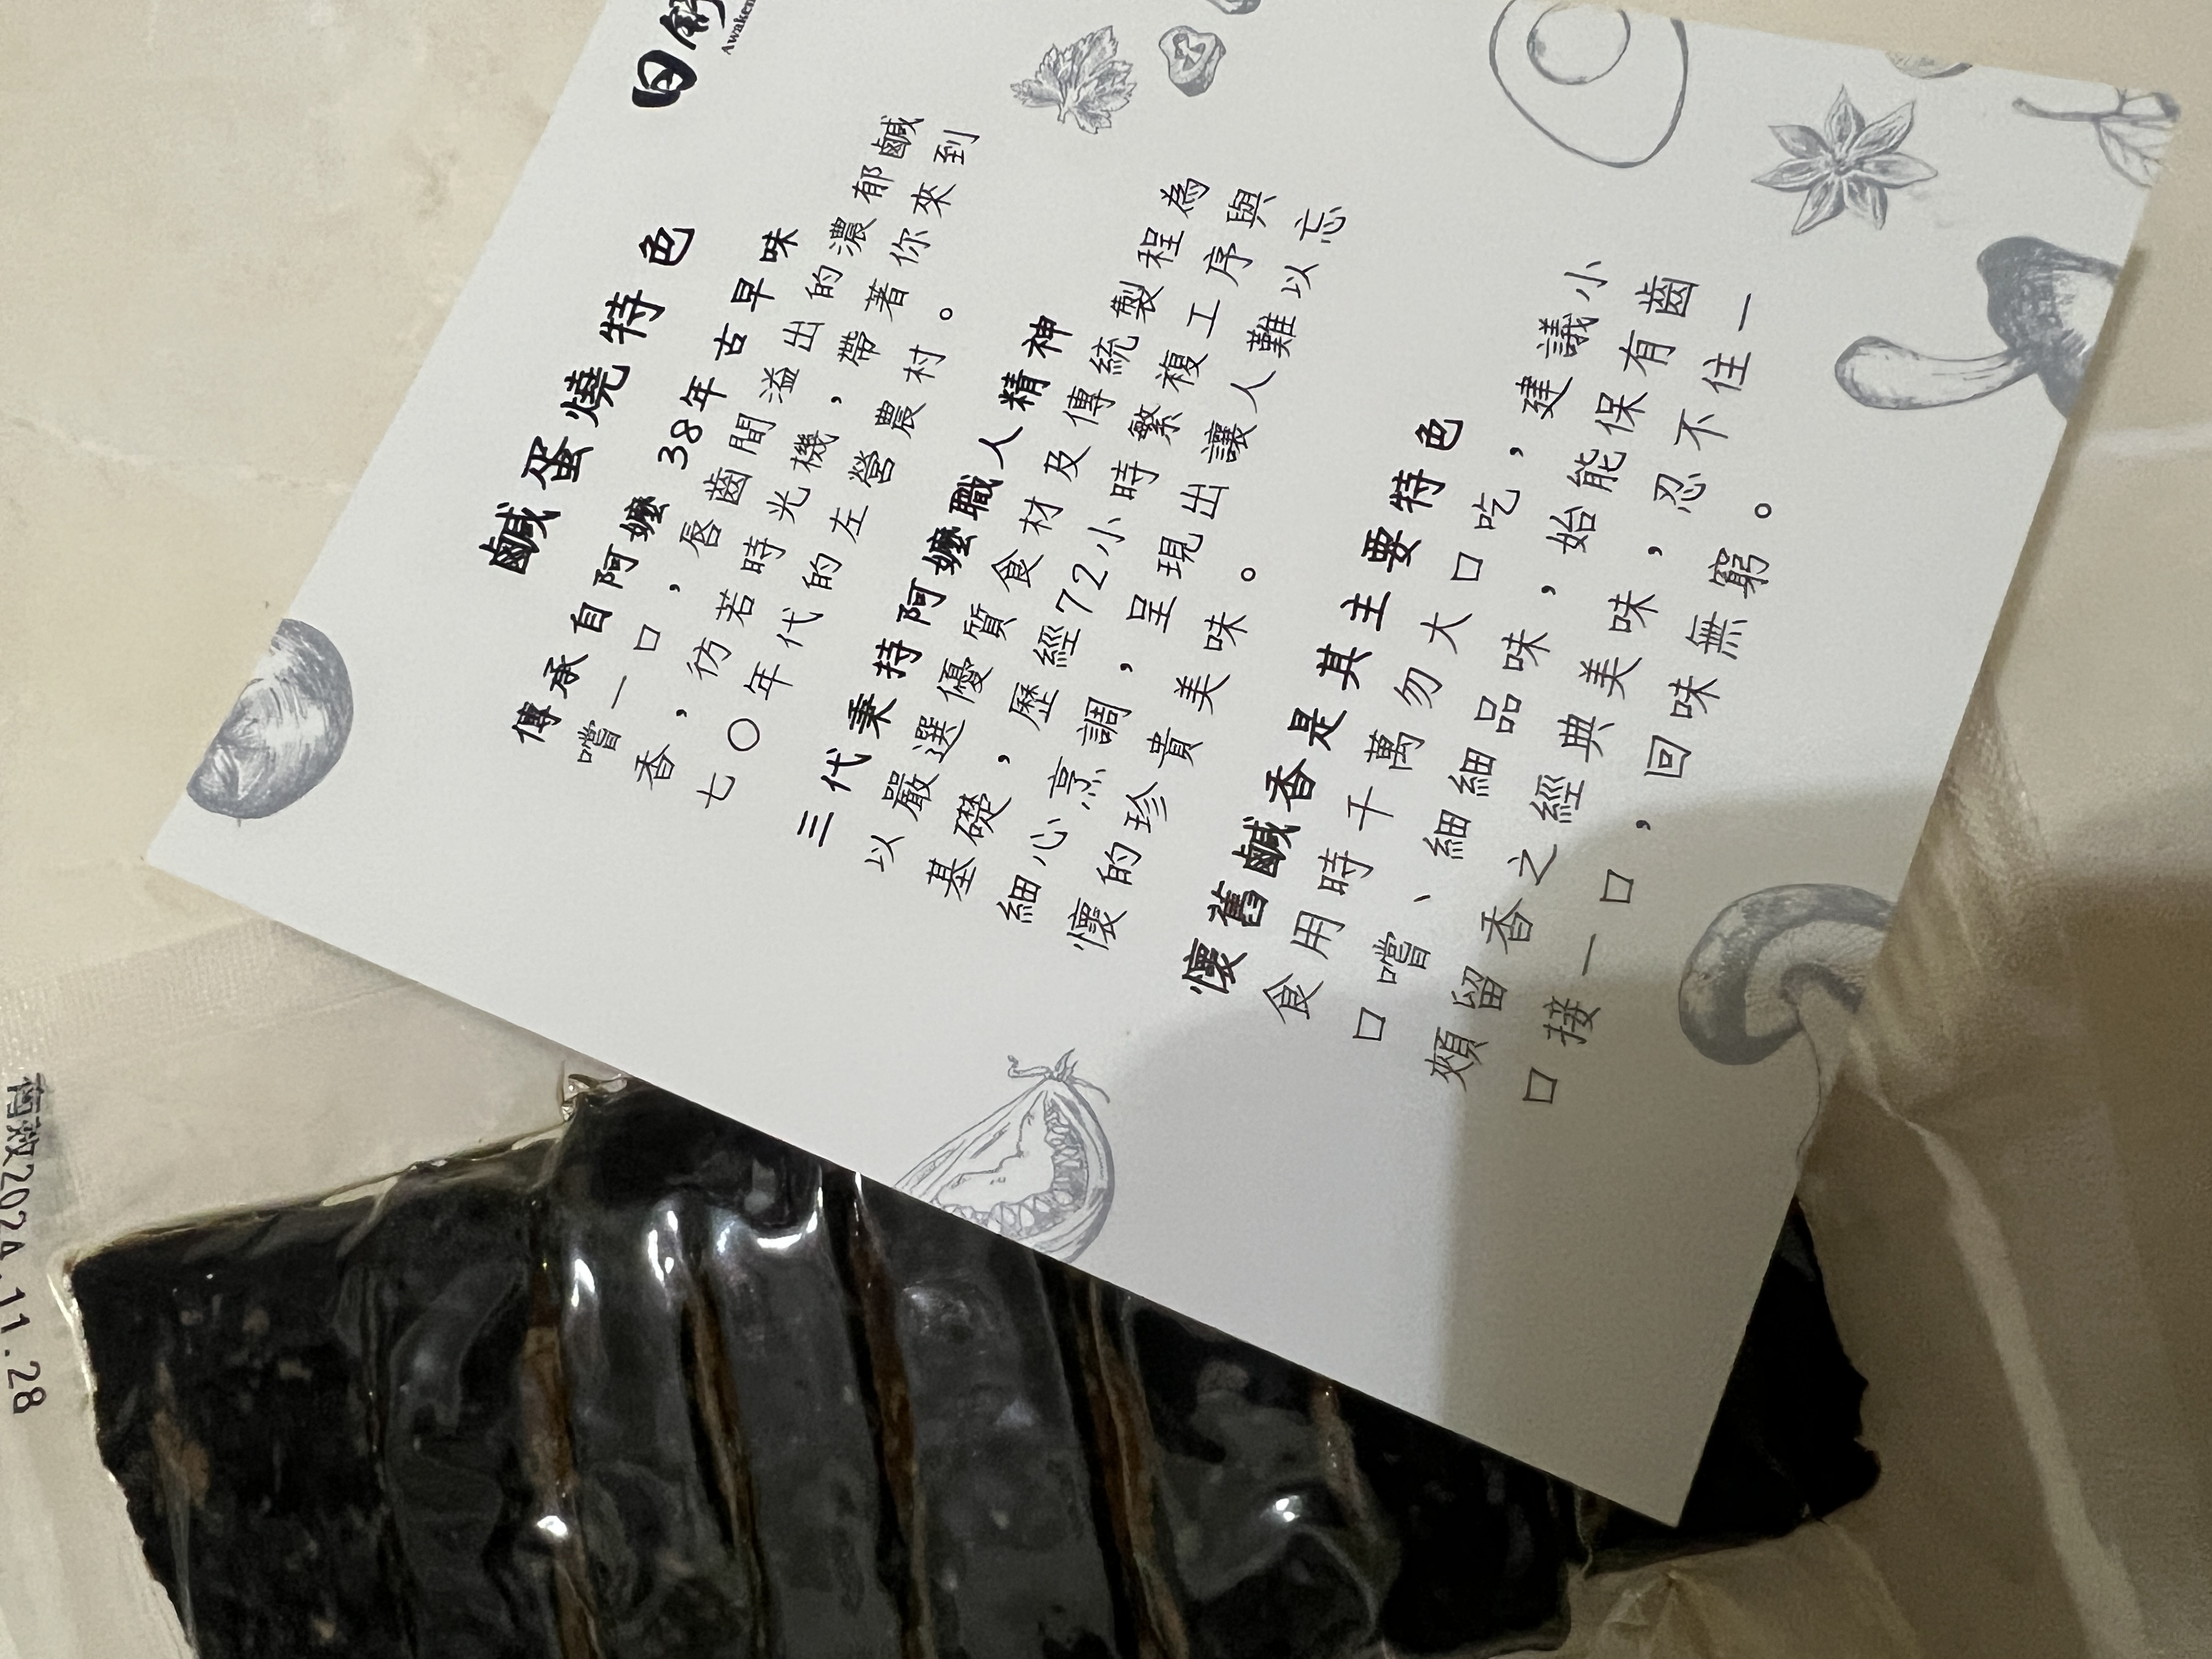 Awaken
鹹蛋燒特色
傳承自阿嬤 38年古早味
嚐一口，唇齒間溢出的濃郁鹹
香，彷若時光機，帶著你來到
七〇年代的左營農村。
三代秉持阿嬤職人精神
以嚴選優質食材及傳統製程為
基礎，歷經72小時繁複工序與
細心烹調，呈現出讓人難以忘
懷的珍貴美味。
懷舊鹹香是其主要特色
食用時千萬勿大口吃，建議小
口嚐、細細品味，始能保有齒
頰留香之經典美味，忍不住一
口接一口，回味無窮。
有效2024.11.28